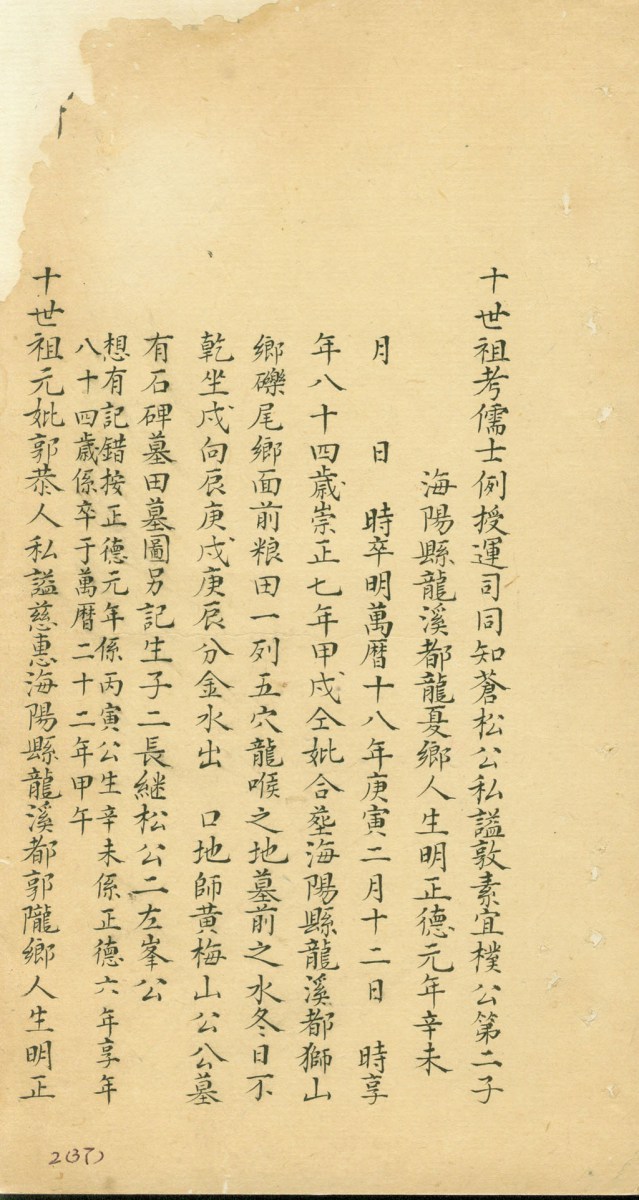 十世祖考儒士例授運司同知蒼松公私謚敦素宜樸公第二子
海陽縣龍溪都龍夏鄉人生明正德元年辛未
月　日　時卒明萬曆十八年庚寅二月十二日　時享
年八十四歲崇正七年甲戌仝妣合塟海陽縣龍溪都獅山
鄉礫尾鄉面前粮田一列五穴龍喉之地墓前之水冬日不
乾坐戌向辰庚戌庚辰分金水出　口地師黄梅山公公墓
有石碑墓田墓圖另記生子二長継松公二左峯公
想有記錯按正德元年係丙寅公生辛未係正德六年享年
八十四歲係卒于萬曆二十二年甲午
十世祖元妣郭恭人私謚慈惠海陽縣龍溪都郭隴鄉人生明正
2(37)